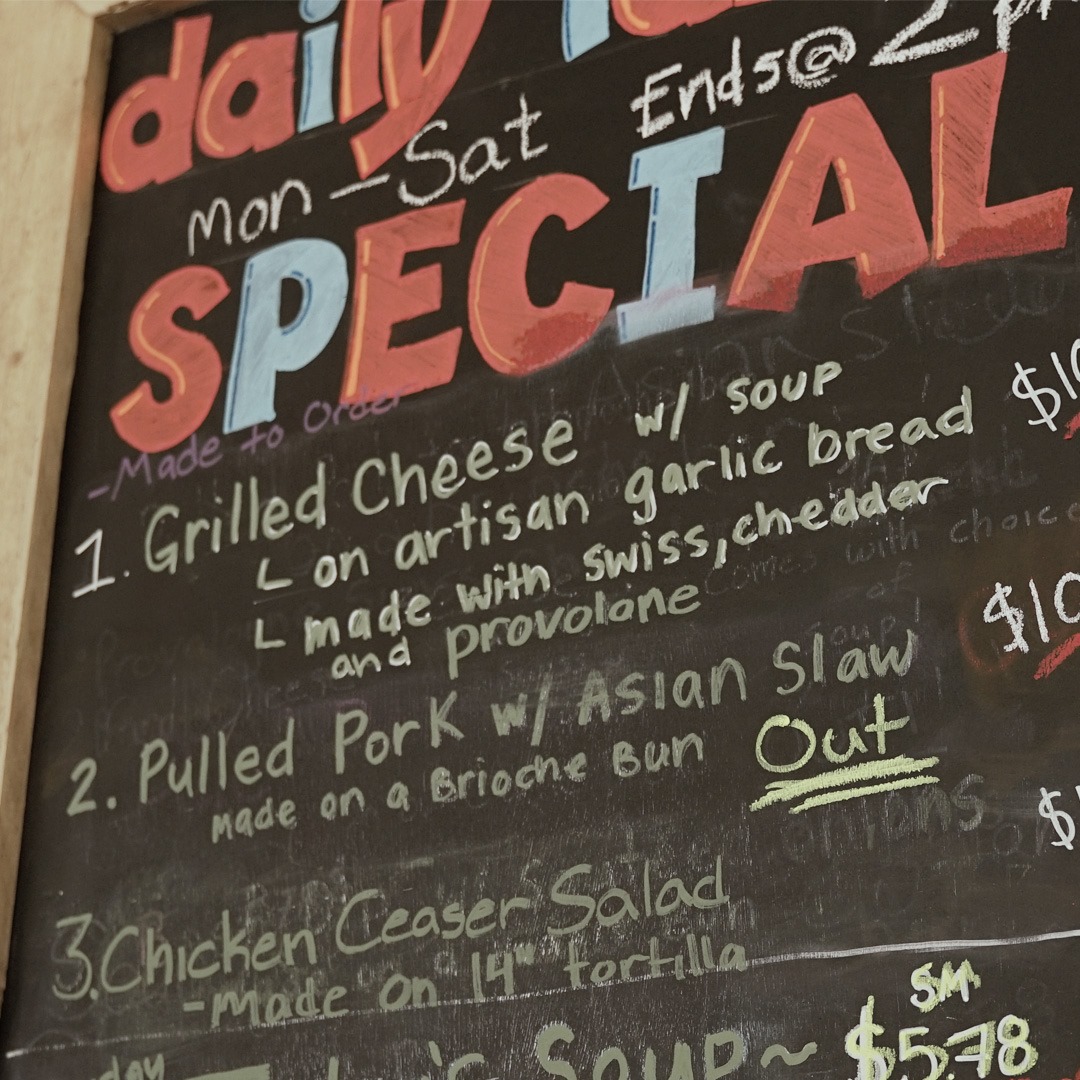 daily
Mon-Sat Ends@2
SPECIAL
-Made to Order
1. Grilled Cheese w/ soup
L on artisan garlic bread
L made with swiss, chedder
and provolone
$10
2. Pulled Pork w/ Asian Slaw
made on a Brioche Bun
Out
$10
3. Chicken Ceaser Salad
-made on 14" tortilla
SM
Soup~ $5.78